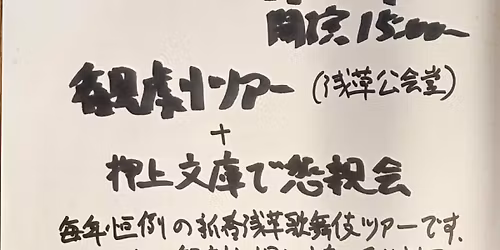 開演15:00〜
観劇ツアー(浅草公会堂)
+
押上文庫で懇親会
毎年恒例の新春浅草歌舞伎ツアーです。